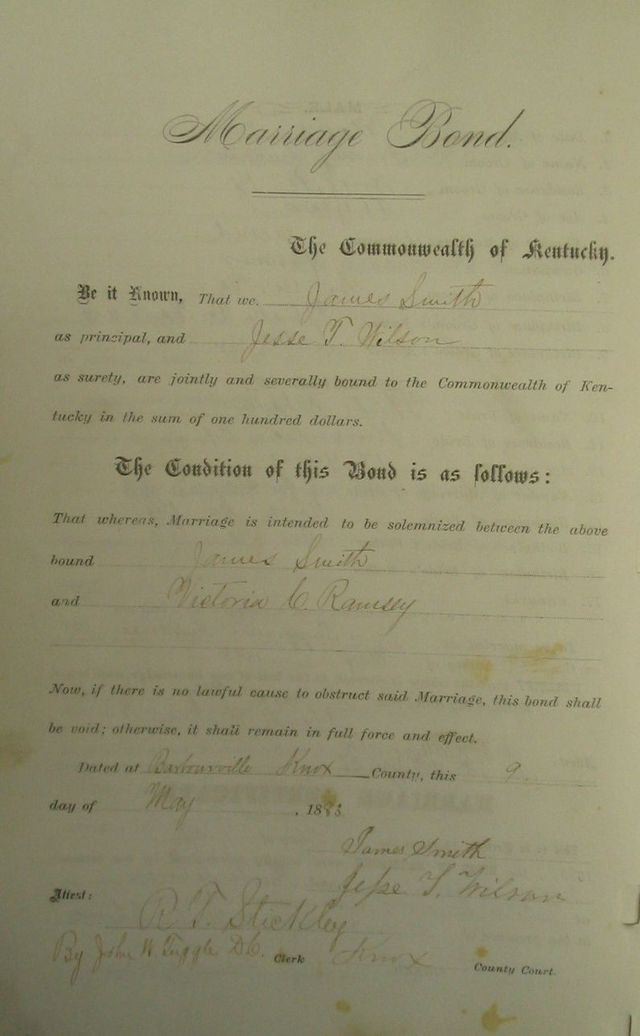 Marriage Bond.
The Commonwealth of Kentucky.
Be it Known, That we. James Smith
as principal, and Jesse T. Wilson
as surety, are jointly and severally bound to the Commonwealth of Ken-
tucky in the sum of one hundred dollars.
The Condition of this Bond is as follows:
That whereas, Marriage is intended to be solemnized between the above
bound James Smith
and Victoria C. Ramsey
Now, if there is no lawful cause to obstruct said Marriage, this bond shall
be void; otherwise, it shall remain in full force and effect.
Dated at Barbourville Knox County, this 9.
day of May , 188
James Smith
Jesse T. Wilson
Attest:
R. T. Stickley
By John H. Tuggle D.C. Clerk Knox County Court.